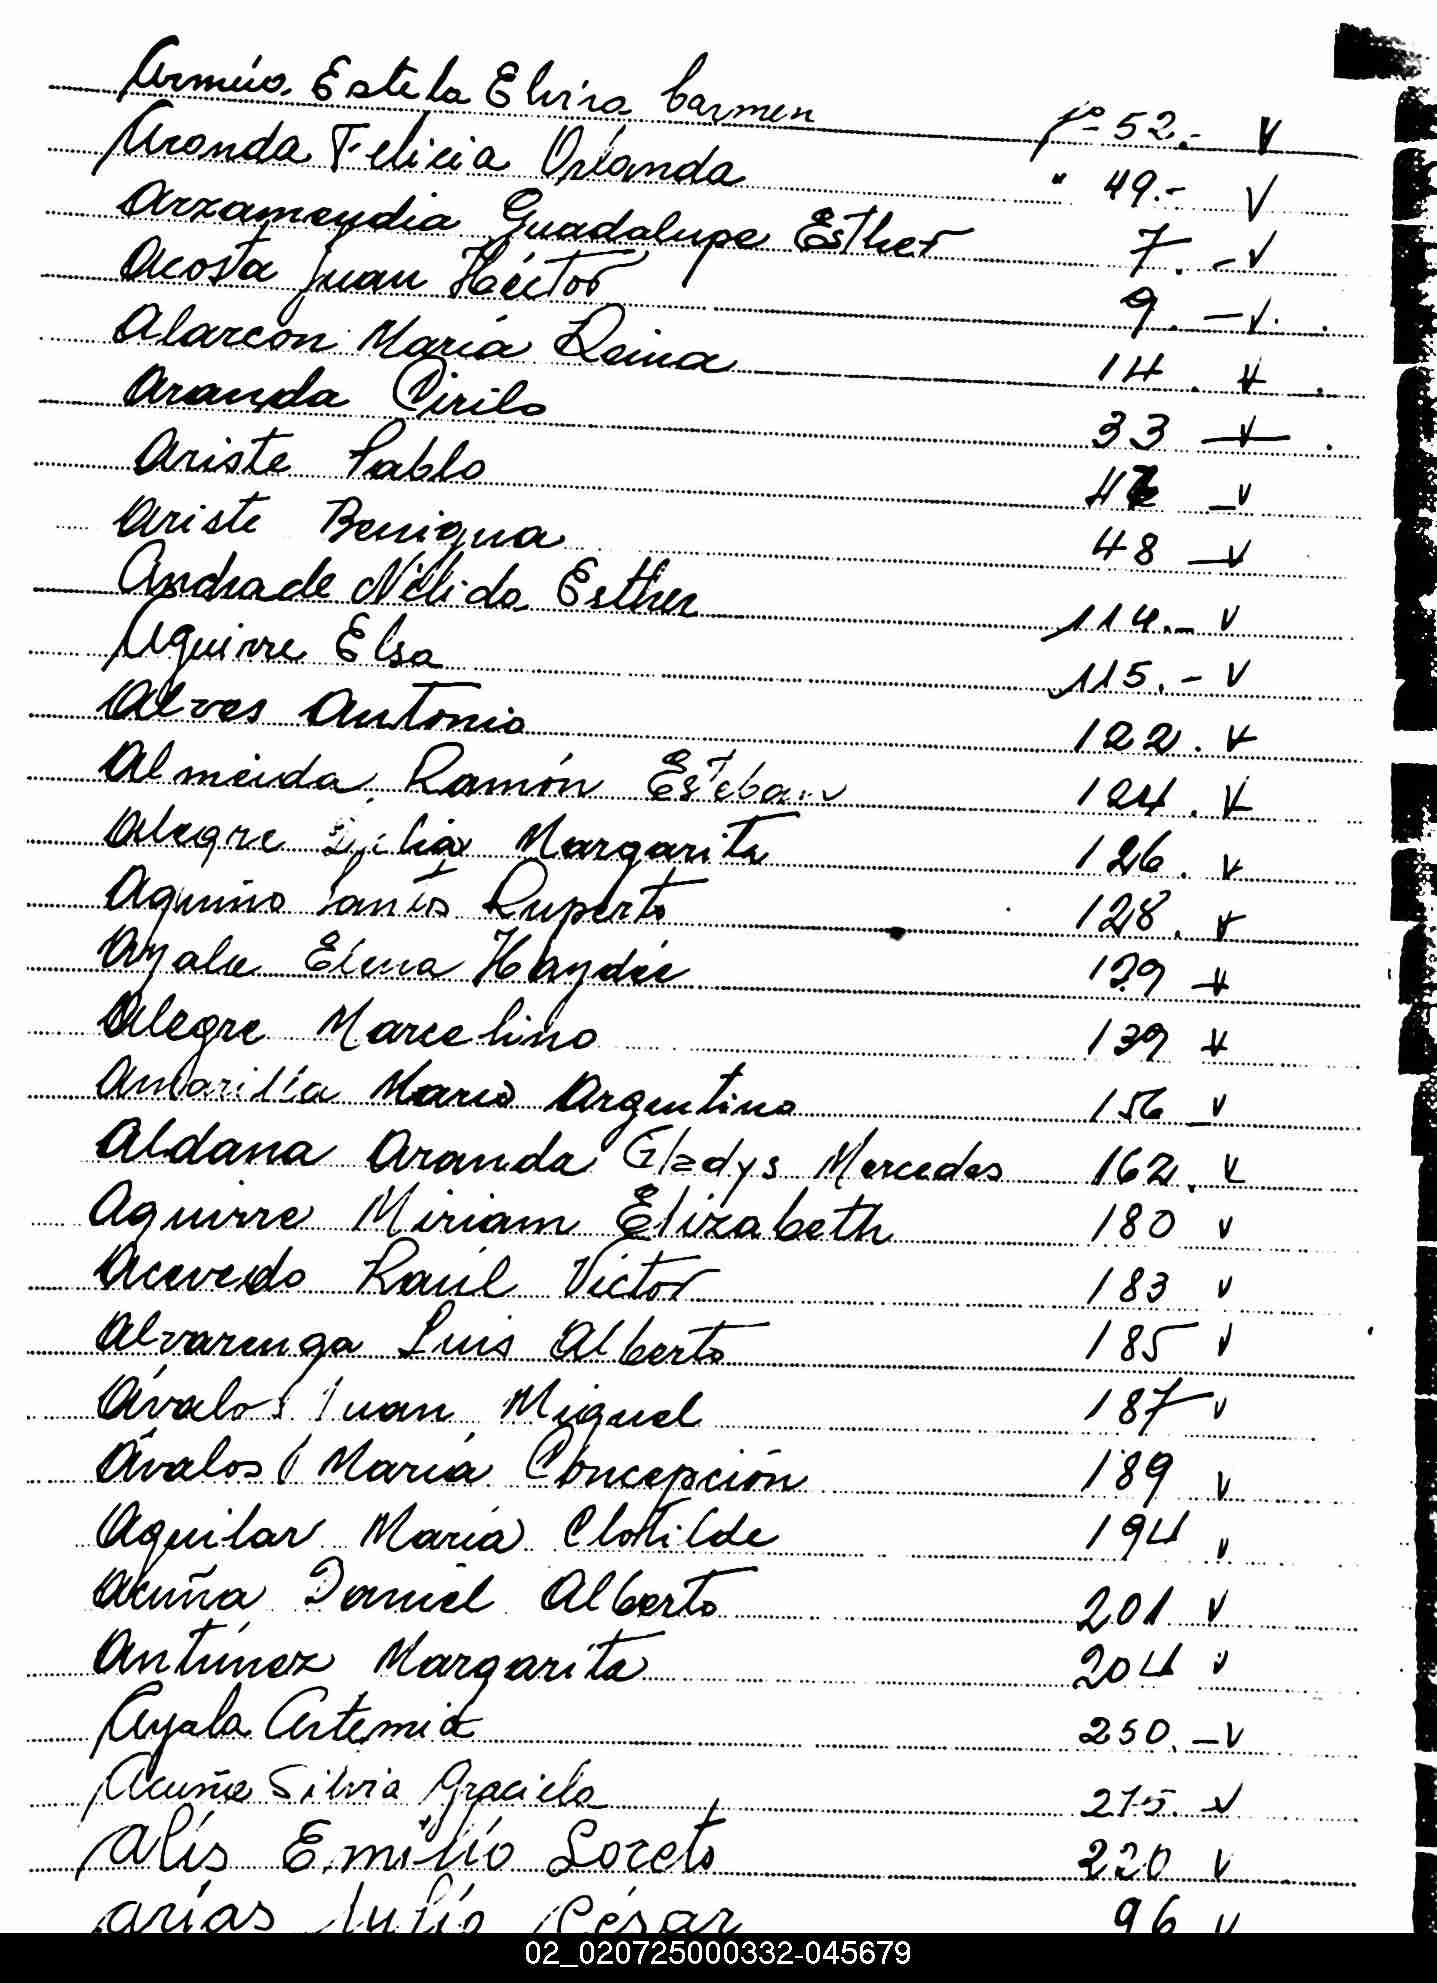 Armúa Estela Elvira Carmen fº 52.- V
Aranda Felicia Orlanda " 49.- V
Arzamendia Guadalupe Esther 7. - V
Acosta Juan Héctor 9. - V
Alarcón María Reina 14. V
Aranda Cirilo 33 V
Ariste Pablo V
Ariste Benigna 48 - V
Andrade Nélida Esther 114.- V
Aguirre Elsa 115.- V
Alves Antonio 122. V
Almeida Ramón Esteban 124. V
Alegre Margarita 126. V
Aquino Santos Ruperto 128. V
Ayala Elena Haydée 129 V
Alegre Marcelino 139 V
Amarilla Mario Argentino 156 V
Aldana Aranda Gladys Mercedes 162. V
Aguirre Miriam Elizabeth 180 V
Acevedo Raúl Víctor 183 V
Alvarenga Luis Alberto 185 V
Ávalos Juan Miguel 187 V
Ávalos María Concepción 189 V
Aguilar María Clotilde 194 V
Acuña Daniel Alberto 201 V
Antúnez Margarita 204 V
Ayala Artemia 250. - V
Acuña Silvia Graciela 215. V
Alís Emilio Loreto 220 V
Arias Julio César 96 V
02_020725000332-045679